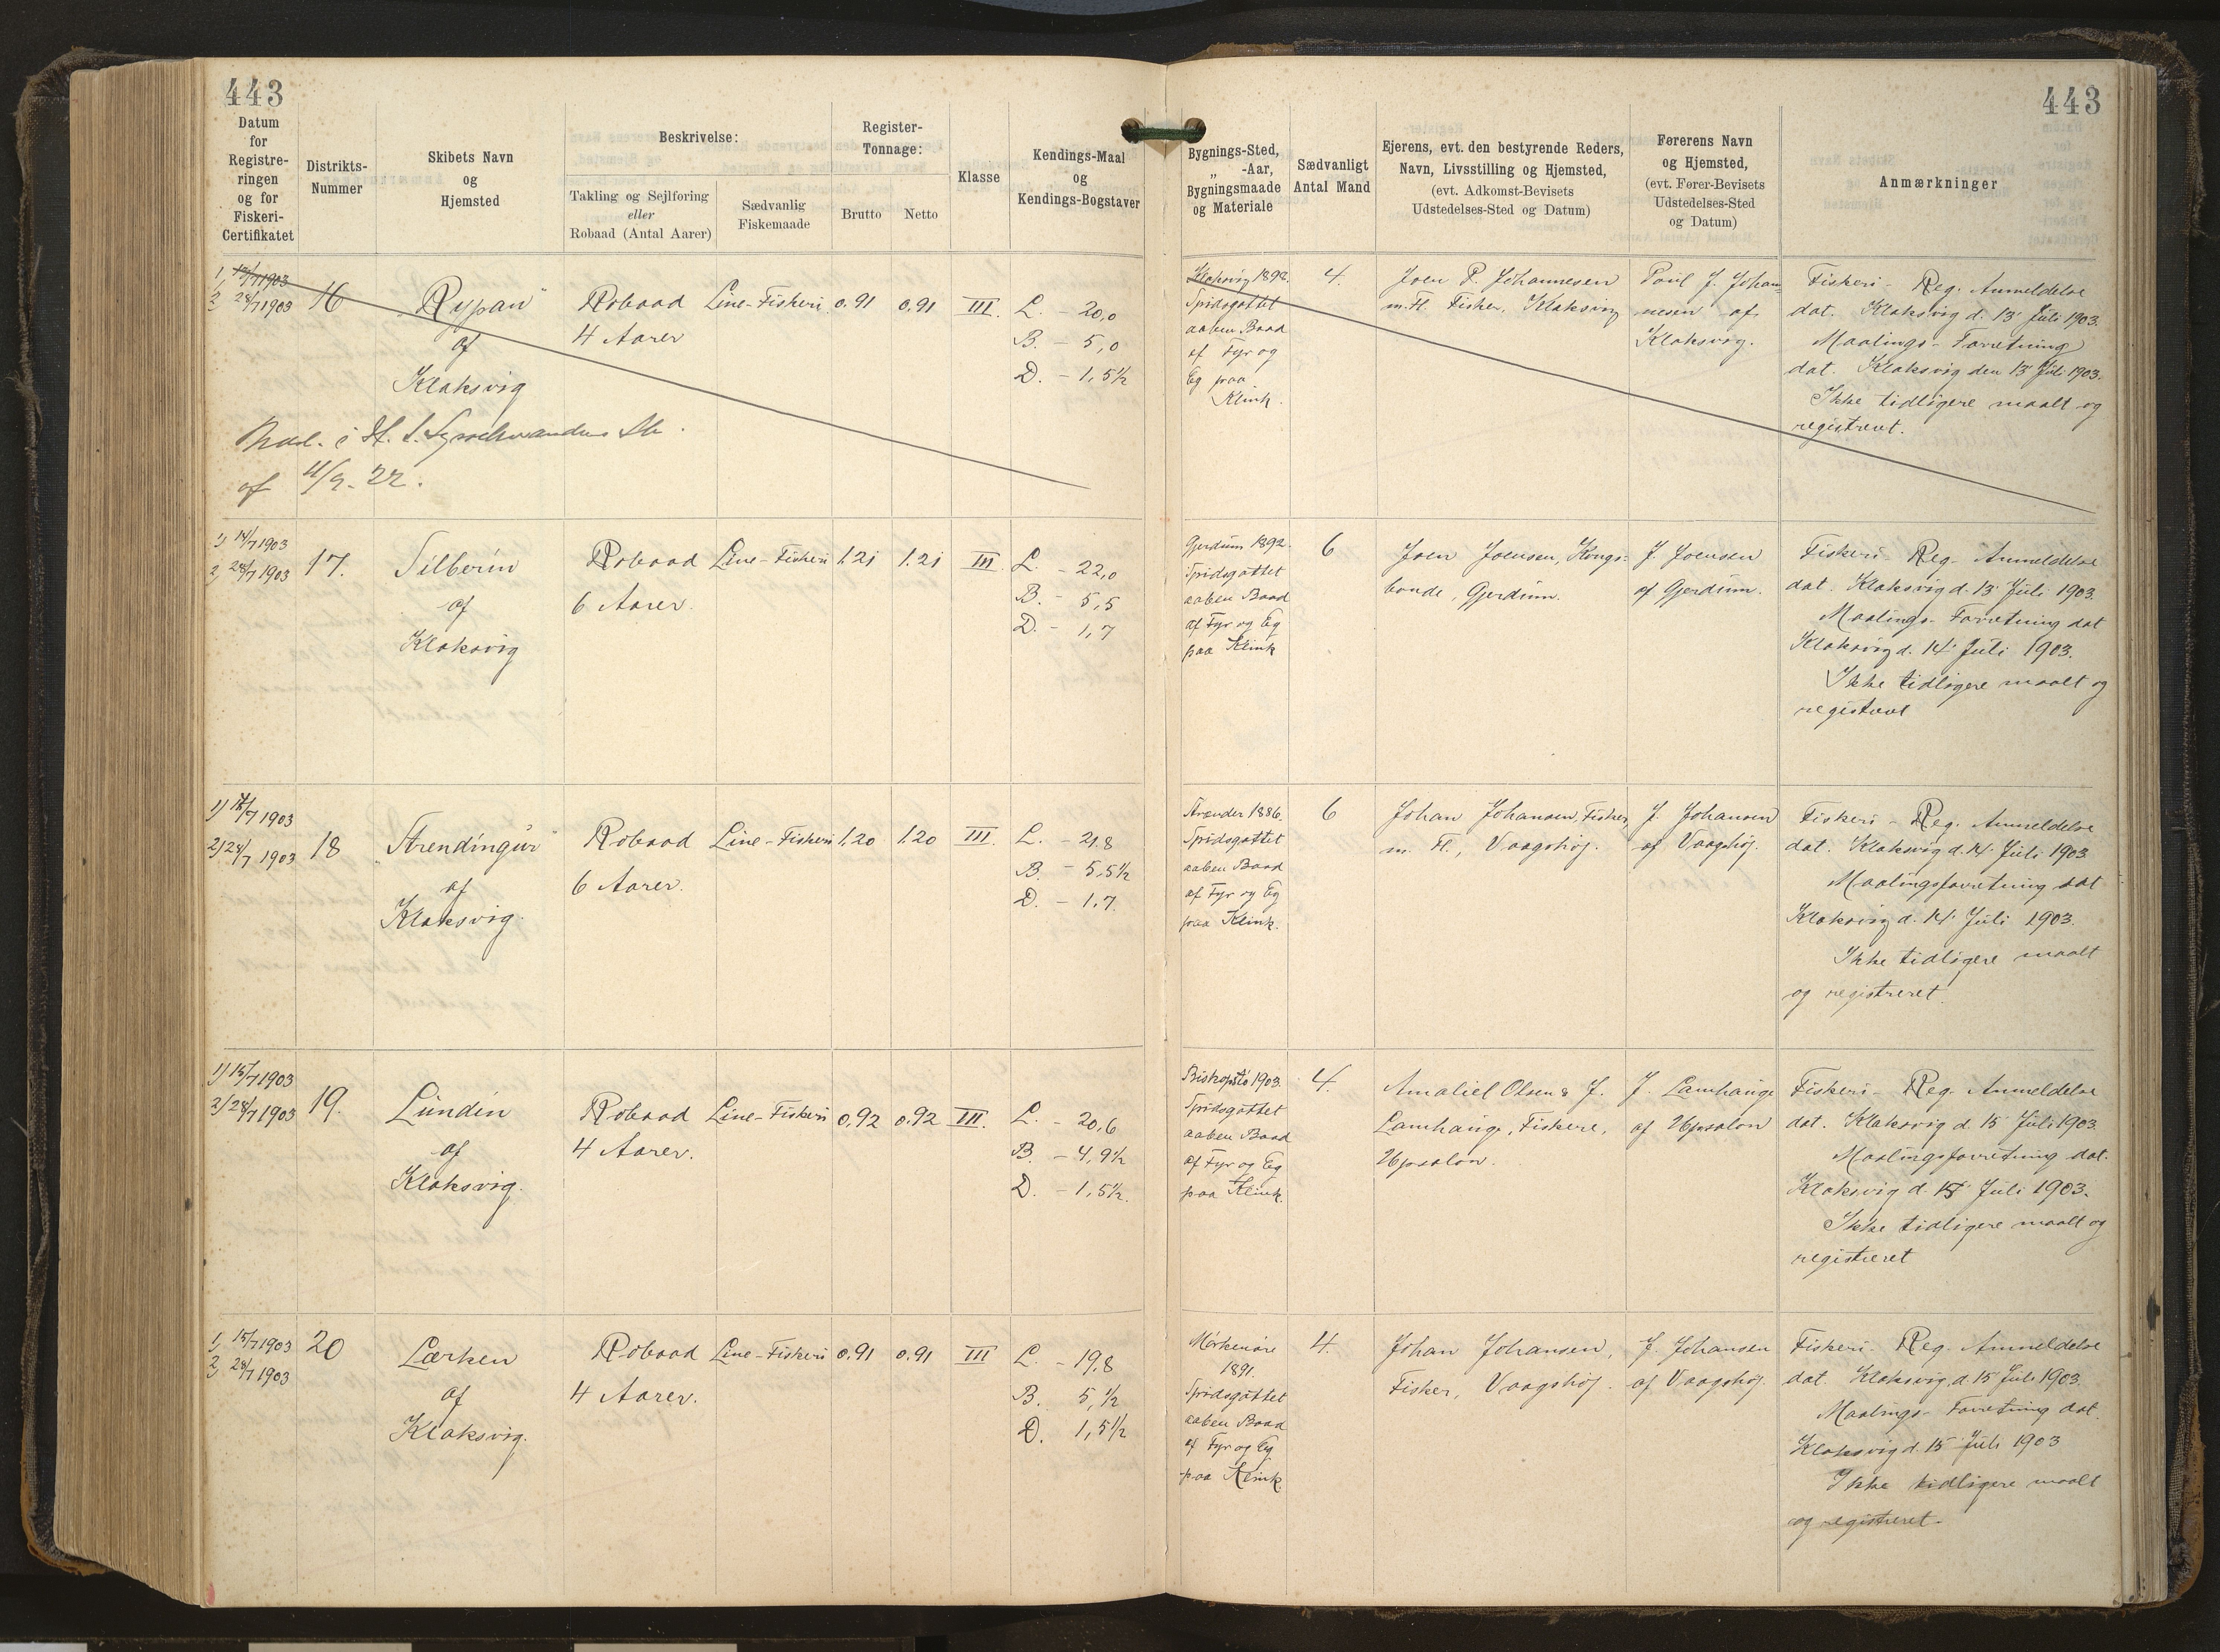 443
443
Datum
for
Registre-
ringen
og for
Fiskeri-
Certifikatet
Distrikts-
Nummer
Skibets Navn
og
Hjemsted
Beskrivelse:
Takling og Sejlføring
eller
Robaad (Antal Aarer)
Sædvanlig
Fiskemaade
Register-
Tonnage:
Brutto
Netto
Klasse
Kendings-Maal
og
Kendings-Bogstaver
Bygnings-Sted,
„ -Aar,
Bygningsmaade
og Materiale
Sædvanligt
Antal Mand
Ejerens, evt. den bestyrende Reders,
Navn, Livsstilling og Hjemsted,
(evt. Adkomst-Bevisets
Udstedelses-Sted og Datum)
Førerens Navn
og Hjemsted,
(evt. Fører-Bevisets
Udstedelses-Sted
og Datum)
Anmærkninger
1, 13/7 1903
2, 28/7 1903
16
"Rypan"
af
Klaksvig
Robaad
4 Aarer
Line-Fiskeri
0.91
0,91
III.
L. - 20,0
B. - 5,0
D. - 1,5½
Klaksvig 1898.
Spidsgattet
aaben Baad
af Fyr og
Eg paa
Klink.
4.
Joen P. Johannesen
m. Fl. Fisker, Klaksvig
Poul J. Johan-
nesen af
Klaksvig.
Fiskeri - Reg. Anmeldelse
dat. Klaksvig d. 13 Juli 1903.
Maalings-Forretning
dat. Klaksvig den 13 Juli 1903.
Ikke tidligere maalt og
registreret.
af 11/9. 22.
1) 14/7 1903
2, 28/7 1903
17.
Silberin
af
Klaksvig
Robaad
6 Aarer.
Line-Fiskeri
1.21
1.21
III.
L. - 22,0
B. - 5,5
D. - 1,7
Gjerdum 1892.
Spidsgattet
aaben Baad
af Fyr og Eg
paa Klink
6
Joen Joensen, Kongs-
bonde, Gjerdum.
J. Joensen
af Gjerdum.
Fiskeri - Reg. Anmeldelse
dat. Klaksvig d. 13 Juli 1903.
Maalings-Forretning dat
Klaksvig d. 14 Juli 1903.
Ikke tidligere maalt og
registreret
1) 14/7 1903
2) 28/7 1903
18
"Strendingur"
af
Klaksvig.
Robaad
6 Aarer.
Line-Fiskeri
1,20
1.20
III.
L. - 21,8
B. - 5,5½
D. - 1,7.
Strænder 1886.
Spidsgattet
aaben Baad
af Fyr og Eg
paa Klink.
6
Johan Johansen, Fisker,
m. Fl., Vaagshöj.
J. Johansen
af Vaagshöj.
Fiskeri - Reg. Anmeldelse
dat. Klaksvig d. 14 Juli 1903
Maalingsforretning dat
Klaksvig d. 14 Juli 1903.
Ikke tidligere maalt
og registreret.
1) 15/7 1903
2) 28/7 1903
19.
Lundin
af
Klaksvig.
Robaad
4 Aarer.
Line-Fiskeri
0,92
0.92
III.
L. - 20,6
B. - 4,9½
D. - 1,5½.
Biskopstö 1903.
Spidsgattet
aaben Baad
af Fyr og Eg
paa Klink.
4.
Amaliel Olsen & J.
Lamhauge, Fiskere,
Upsalon.
J. Lamhauge
af Upsalon
Fiskeri - Reg. Anmeldelse
dat. Klaksvig d. 15 Juli 1903.
Maalingsforretning dat.
Klaksvig d. 15 Juli 1903.
Ikke tidligere maalt og
registreret
1, 15/7 1903
2, 28/7 1903
20
Lærken
af
Klaksvig.
Robaad
4 Aarer.
Line-Fiskeri
0.91
0.91
III
L. - 19,8
B. 5,½
D. 1,5½
Mörkenöre
1891.
Spidsgattet
aaben Baad
af Fyr og Eg
paa Klink.
4.
Johan Johansen,
Fisker, Vaagshöj.
J. Johansen
af Vaagshöj.
Fiskeri - Reg. Anmeldelse
dat. Klaksvig, d. 15 Juli 1903.
Maalings-Forretning dat.
Klaksvig d. 15 Juli 1903
Ikke tidligere maalt
og registreret.